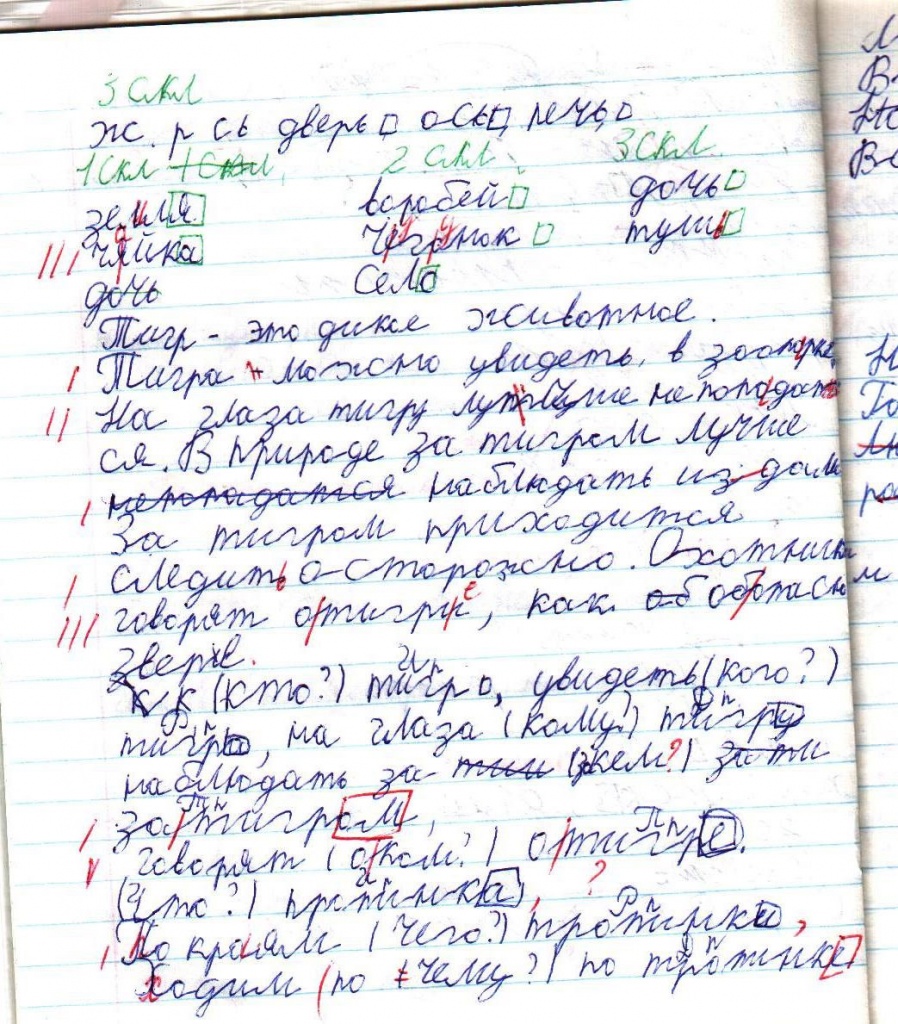 3 скл
ж. р сь дверь ось, печь,
1 скл 1 скл, 2 скл 3 скл.
земля воробей дочь
чайка тушь
дочь село
Тигр - это дикое животное.
Тигра можно увидеть, в зоопарке
На глаза тигру лучше не попадать
ся. В природе за тигром лучше
непопадатся наблюдать из дали
За тигром приходится
следить осторожно. Охотники
говорят о тигре, как об опасном
звере.
К к (кто?) тигр И п, увидеть (кого?)
тигра Р п, на глаза (кому?) тигру Д п
наблюдать за тии (зкем?) за ти
за тигром Тп,
говорят (о ком?) о тигре Пп.
(Что?) тропинка И, ?
По краям (чего?) тропинки Р п,
Ходим (по чему?) по тропинке Д п